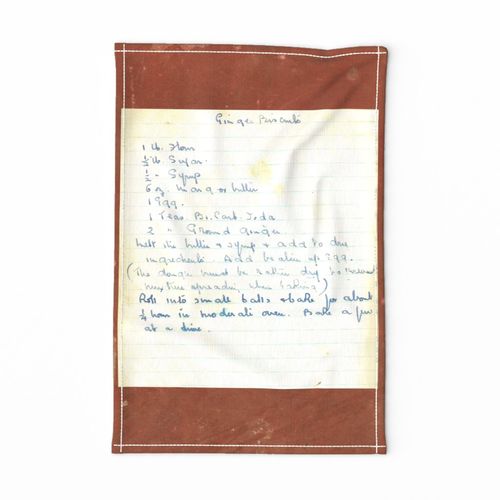 Ginger Biscuits
1 lb. Flour
½ lb. Sugar.
½ " Syrup
6 oz. Marg or butter
1 Egg.
1 Teas Bi. Carb. Soda
2 " Ground Ginger
Melt the butter & syrup & add to dry
ingredients. Add beaten up Egg.
(The dough must be rather dry to prevent
mixture spreading when baking)
Roll into small balls & bake for about
¼ hour in moderate oven. Bake a few
at a time.